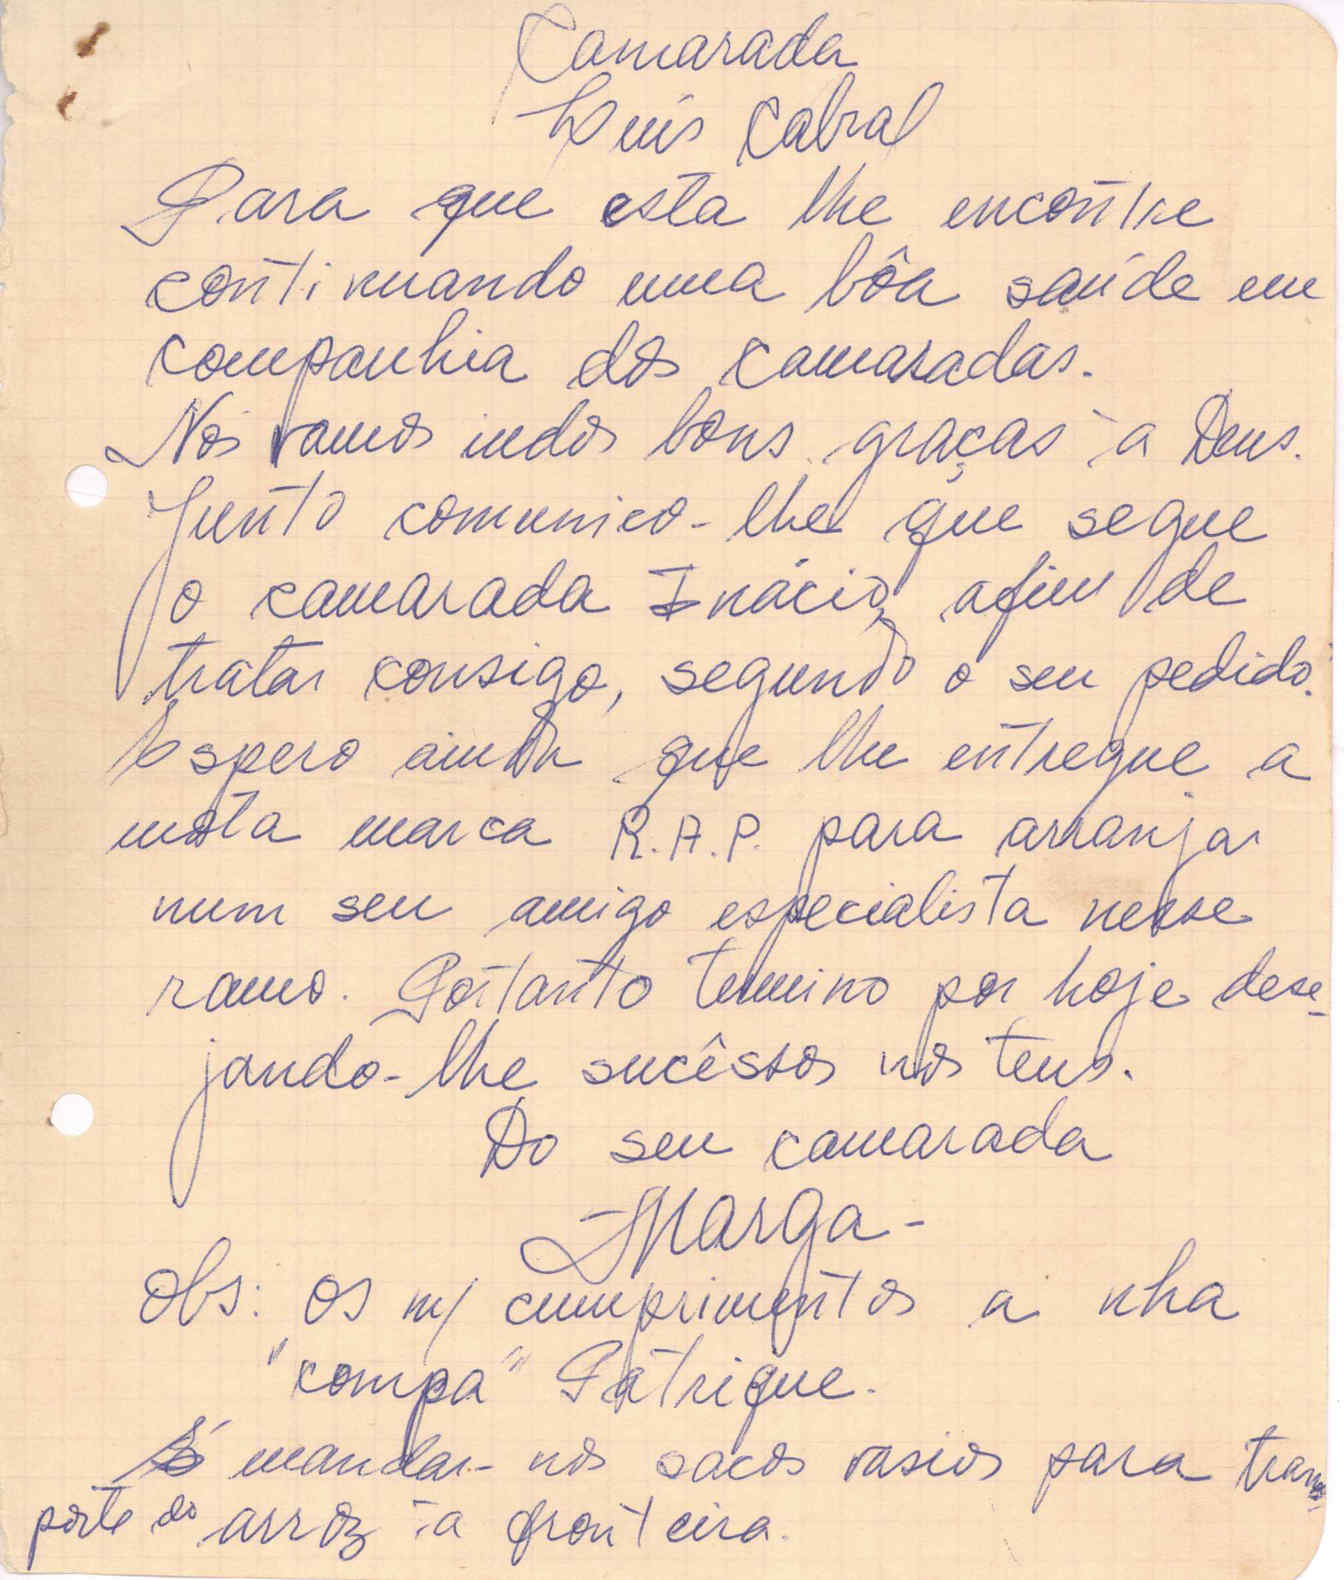 Camarada
Luís Cabral
Para que esta lhe encontre
continuando uma bôa saúde em
companhia dos camaradas.
Nós vamos indos bons graças à Deus.
Junto comunico-lhe que segue
o camarada Inácio, afim de
tratar consigo, segundo o seu pedido.
Espero ainda que lhe entregue a
mota marca R.A.P. para arranjar
num seu amigo especialista nesse
ramo. Portanto termino por hoje dese-
jando-lhe sucêssos nos teus.
Do seu camarada
-Marga-
Obs: Os m/ cumprimentos a nha
"compa" Patrique.
É mandar-nos sacos vasios para trans-
porte do arroz à fronteira.